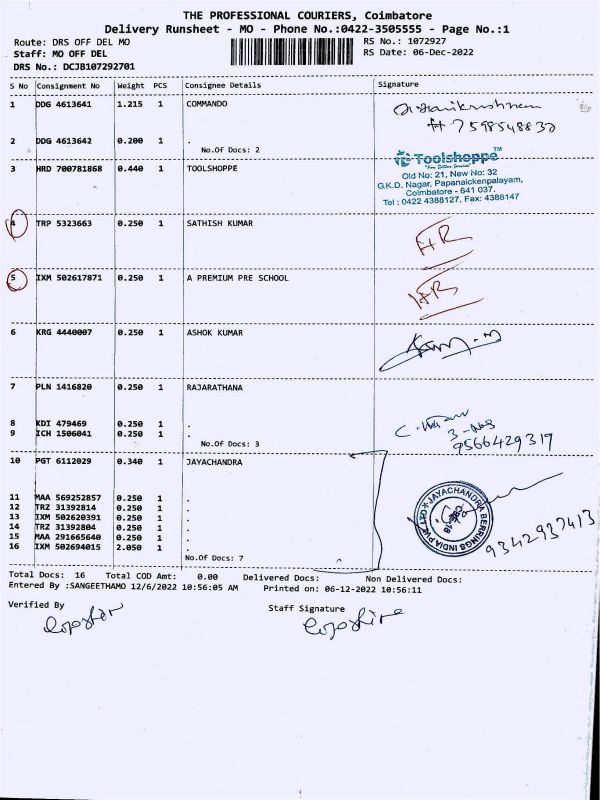 THE PROFESSIONAL COURIERS, Coimbatore
Delivery Runsheet - MO - Phone No.:0422-3505555 - Page No.:1
Route: DRS OFF DEL MO RS No.: 1072927
Staff: MO OFF DEL RS Date: 06-Dec-2022
DRS No.: DCJB107292701
S No Consignment No Weight PCS Consignee Details Signature
1 DDG 4613641 1.215 1 COMMANDO
# 7598548830
2 DDG 4613642 0.200 1 .
No.Of Docs: 2
3 HRD 700781868 0.440 1 TOOLSHOPPE
Toolshoppe TM
Old No: 21, New No: 32
G.K.D. Nagar, Papanaickenpalayam,
Coimbatore - 641 037.
Tel : 0422 4388127, Fax: 4388147
4 TRP 5323663 0.250 1 SATHISH KUMAR
HR
5 IXM 502617871 0.250 1 A PREMIUM PRE SCHOOL
HR
6 KRG 4440007 0.250 1 ASHOK KUMAR
7 PLN 1416820 0.250 1 RAJARATHANA
8 KDI 479469 0.250 1 .
9 ICH 1506041 0.250 1 .
3-Nos
9566429317
No.Of Docs: 3
10 PGT 6112029 0.340 1 JAYACHANDRA
11 MAA 569252857 0.250 1 .
12 TRZ 31392814 0.250 1 .
13 IXM 502620391 0.250 1 .
14 TRZ 31392804 0.250 1 .
15 MAA 291665640 0.250 1 .
16 IXM 502694015 2.050 1 .
JAYACHANDRA BERRINGS INDIA PVT LTD
9342937413
No.Of Docs: 7
Total Docs: 16 Total COD Amt: 0.00 Delivered Docs: Non Delivered Docs:
Entered By :SANGEETHAMO 12/6/2022 10:56:05 AM Printed on: 06-12-2022 10:56:11
Verified By Staff Signature